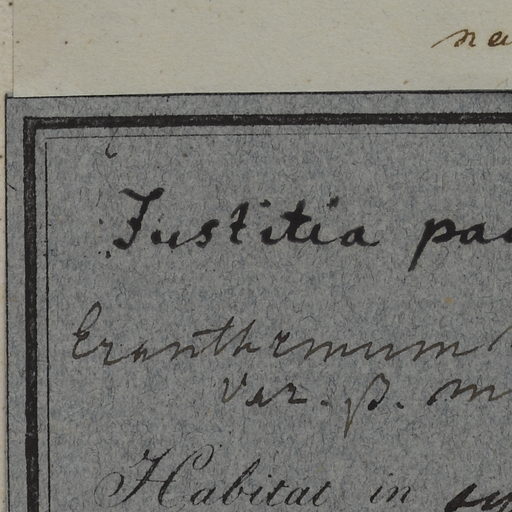 Justitia
Eranthemum
Var. β.
Habitat in